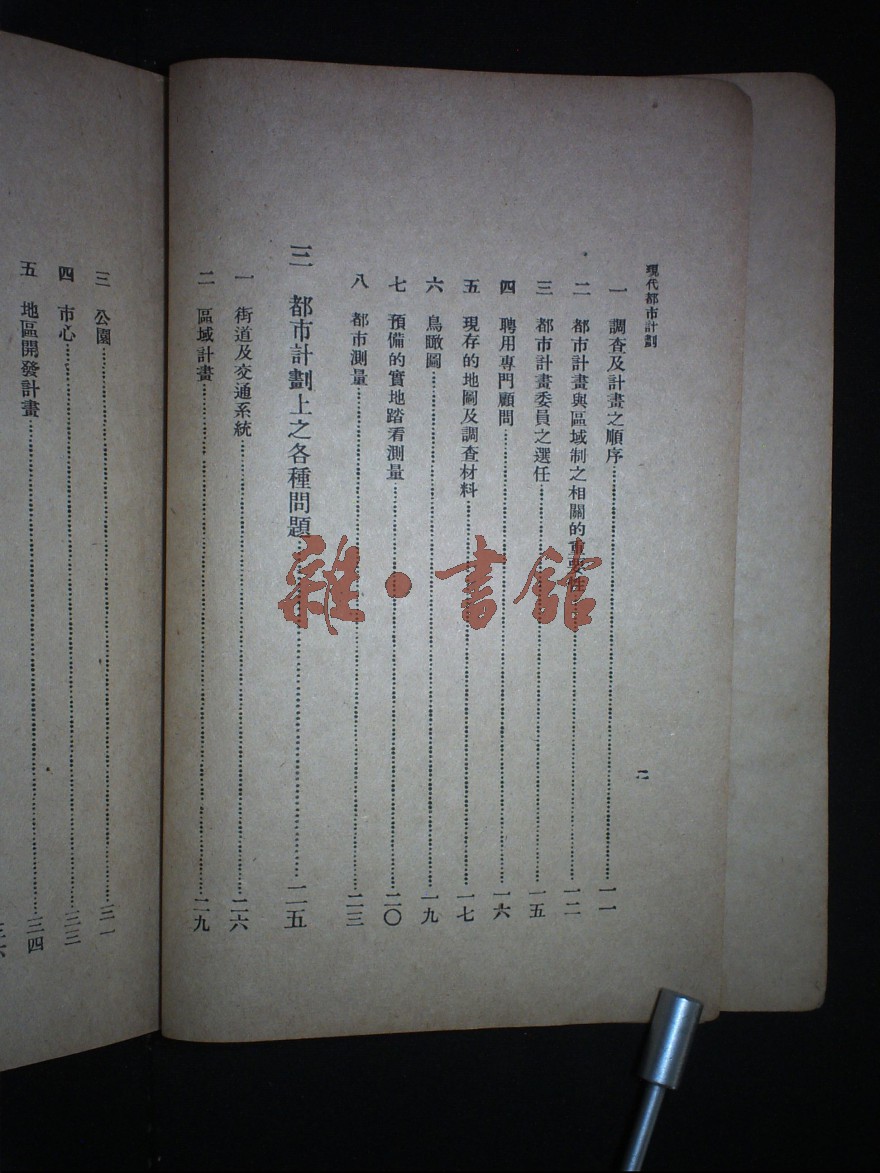 現代都市計劃
二
一 調查及計畫之順序 一一
二 都市計畫與區域制之相關的重要性 一二
三 都市計畫委員之選任 一五
四 聘用專門顧問 一六
五 現存的地圖及調查材料 一七
六 鳥瞰圖 一九
七 預備的實地踏看測量 二〇
八 都市測量 二三
三 都市計劃上之各種問題 二五
一 街道及交通系統 二六
二 區域計畫 二九
三 公園 三一
四 市心 三三
五 地區開發計畫 三四
雜·書館